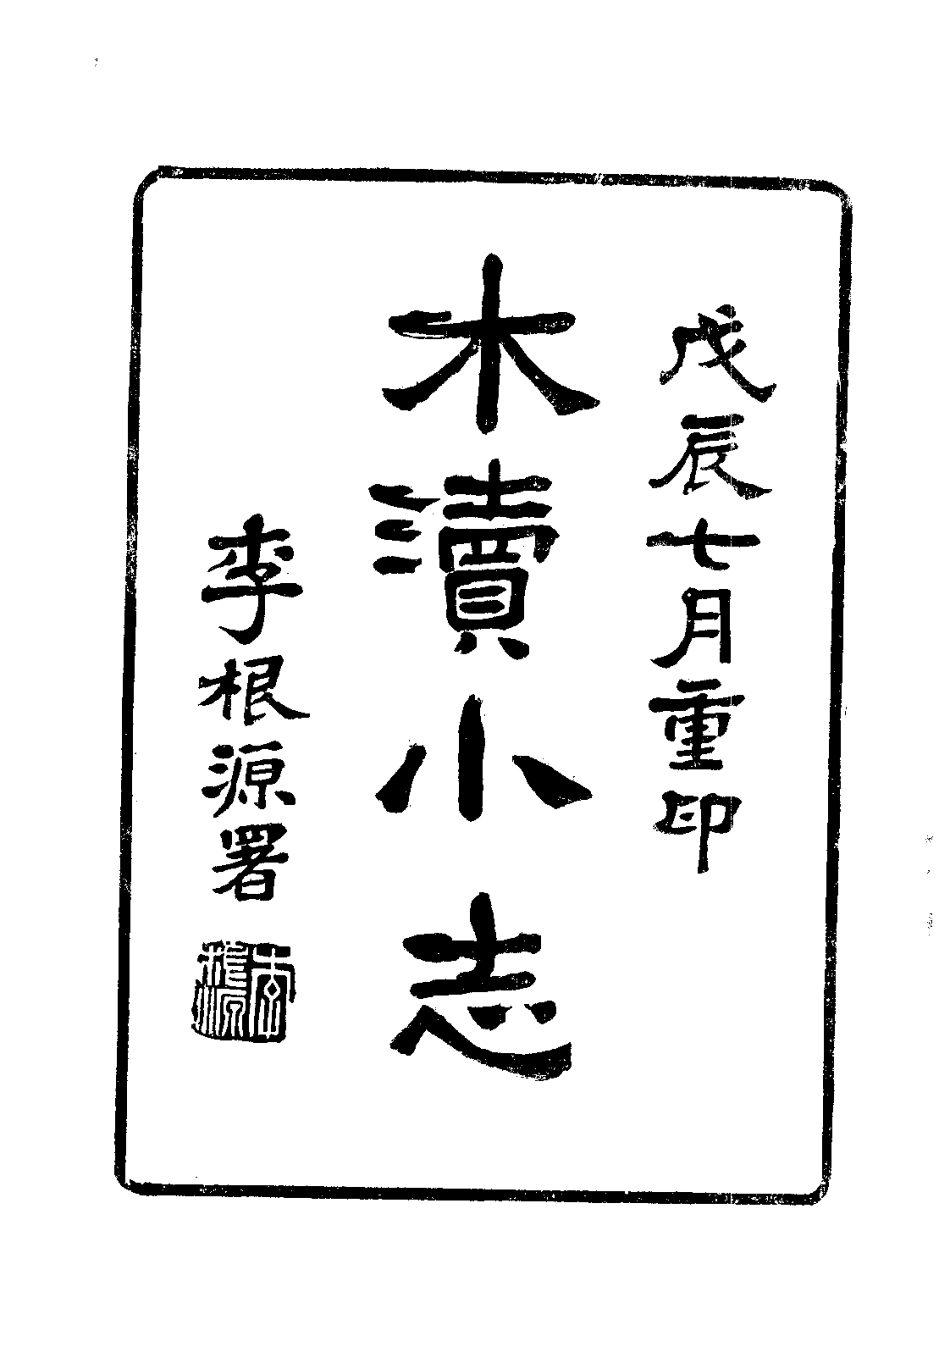 戊辰七月重印
木瀆小志
李根源署
李根源